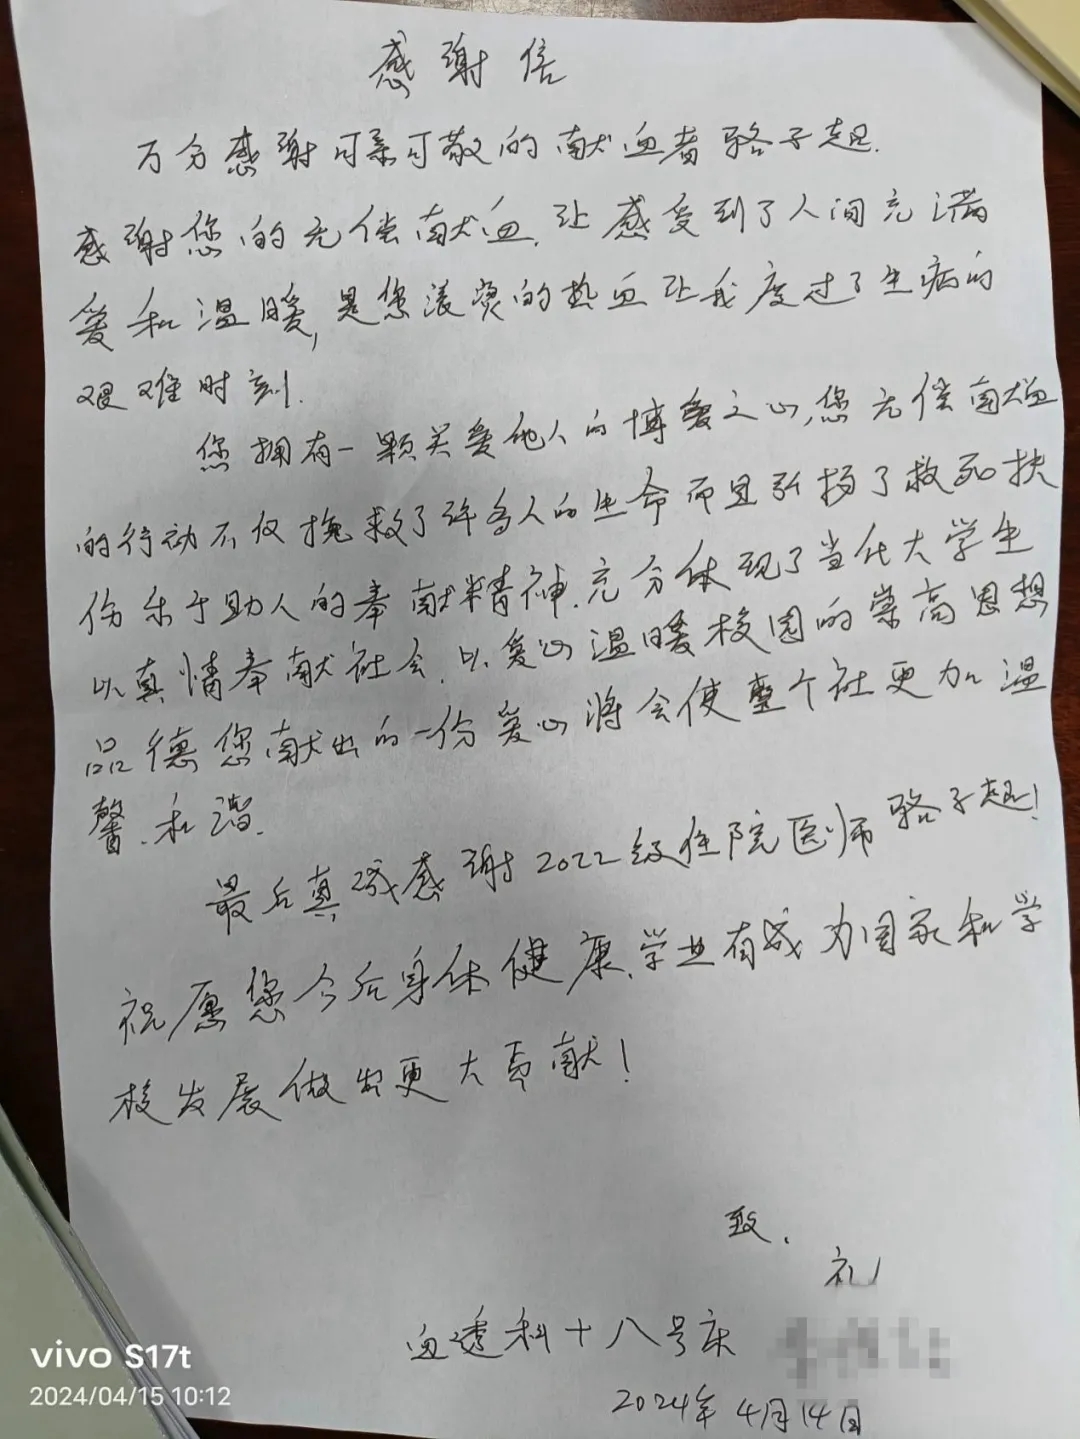 感谢信
万分感谢可亲可敬的献血者骆子起.
感谢您的无偿献血,让感受到了人间充满
爱和温暖,是您滚烫的热血让我度过了生病的
艰难时刻.
您拥有一颗关爱他人的博爱之心,您无偿献血
的行动不仅挽救了许多人的生命而且弘扬了救死扶
伤乐于助人的奉献精神.充分体现了当代大学生
以真情奉献社会.以爱心温暖校园的崇高思想
品德您献出的一份爱心将会使整个社更加温
馨.和谐.
最后真诚感谢2022级住院医师骆子起!
祝愿您今后身体健康.学业有成为国家和学
校发展做出更大贡献!
致.
礼
血透科十八号床
2024年4月14日
vivo S17t
2024/04/15 10:12